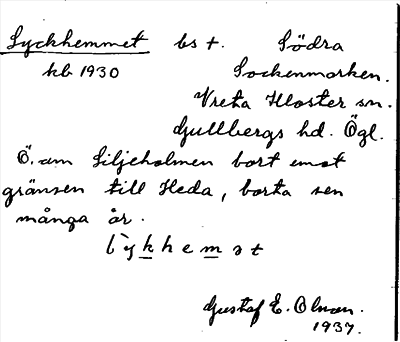 Lyckhemmet bs t. Södra
kb 1930 Sockenmarken.
Vreta Kloster sn.
Gullbergs hd. Ögl.
Ö. om Liljeholmen bort emot
gränsen till Heda, borta sen
många år.
Gustaf E. Olman.
1937.